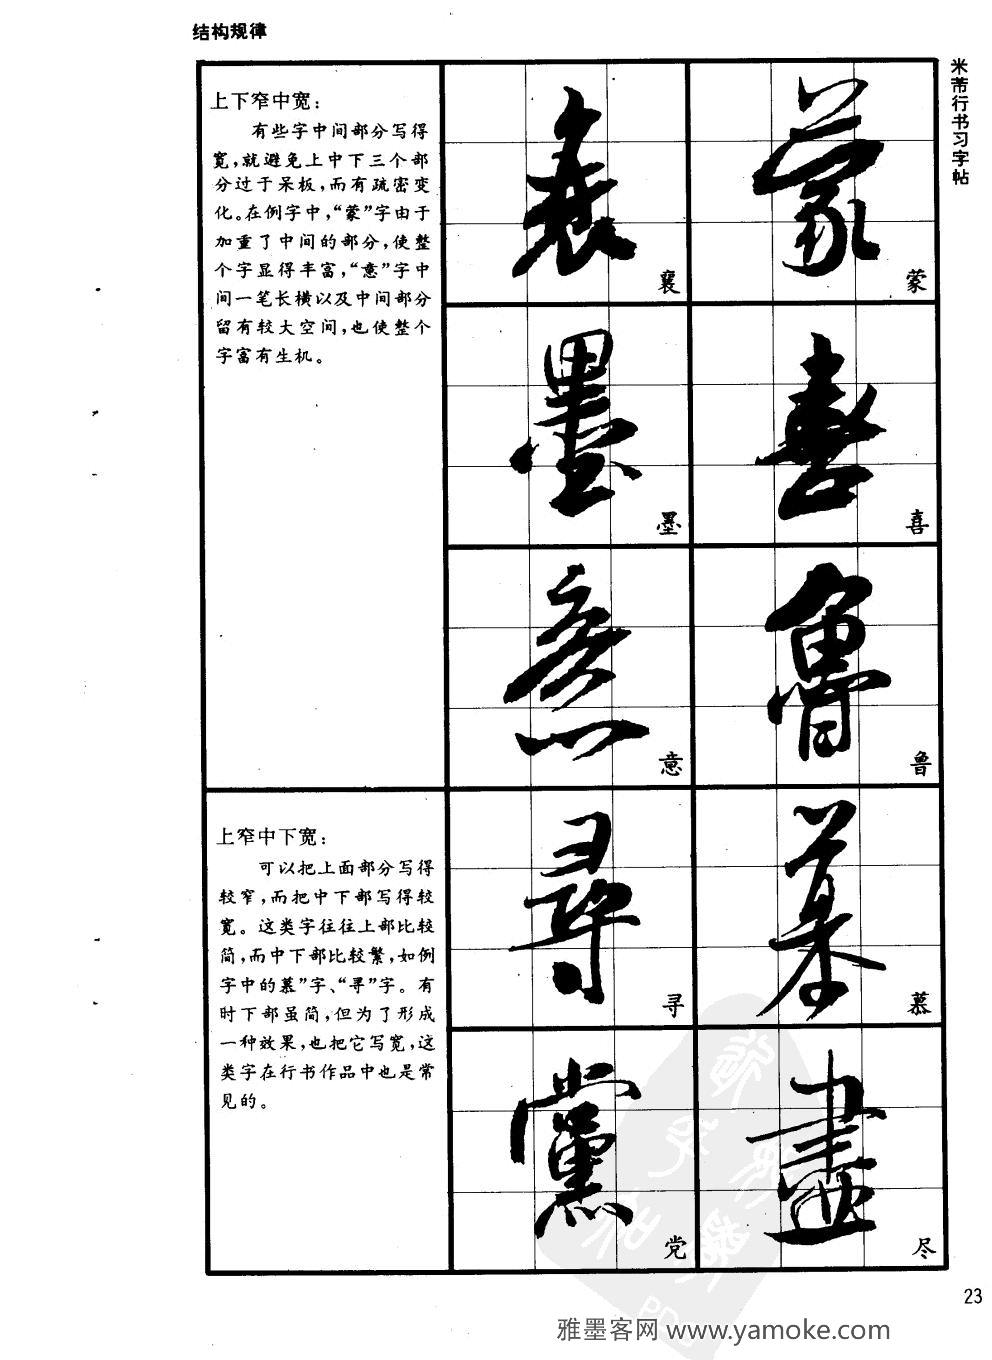 结构规律
米芾行书习字帖
上下窄中宽：
有些字中间部分写得
宽，就避免上中下三个部
分过于呆板，而有疏密变
化。在例字中，“蒙”字由于
加重了中间的部分，使整
个字显得丰富，“意”字中
间一笔长横以及中间部分
留有较大空间，也使整个
字富有生机。
襄
蒙
墨
喜
意
鲁
上窄中下宽：
可以把上面部分写得
较窄，而把中下部写得较
宽。这类字往往上部比较
简，而中下部比较繁，如例
字中的慕”字、“寻”字。有
时下部虽简，但为了形成
一种效果，也把它写宽，这
类字在行书作品中也是常
见的。
寻
慕
党
尽
23
雅墨客网 www.yamoke.com